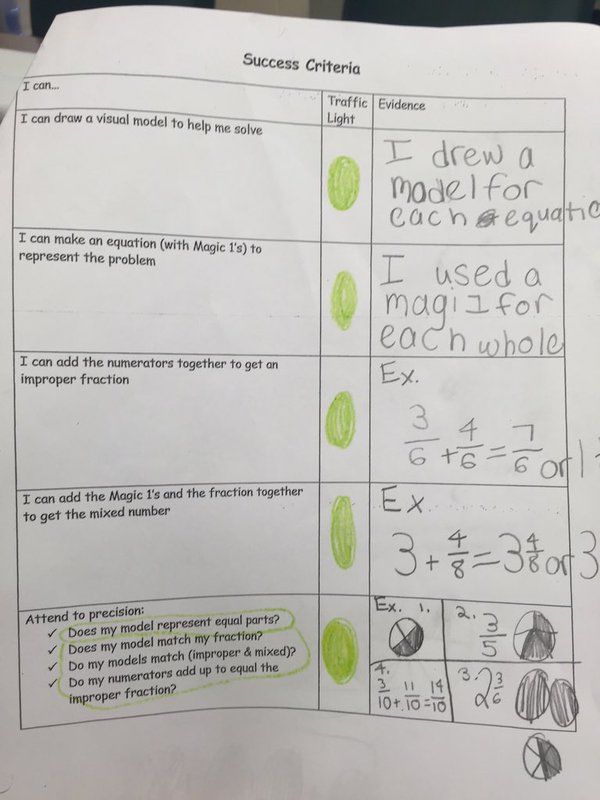 Success Criteria
I can...
Traffic
Light
Evidence
I can draw a visual model to help me solve
I drew a
model for
each equatio
I can make an equation (with Magic 1's) to
represent the problem
I used a
magi 1 for
each whole
I can add the numerators together to get an
improper fraction
Ex.
3/6 + 4/6 = 7/6 or 1
I can add the Magic 1's and the fraction together
to get the mixed number
Ex
3 + 4/8 = 3 4/8 or 3
Attend to precision:
✓ Does my model represent equal parts?
✓ Does my model match my fraction?
✓ Do my models match (improper & mixed)?
✓ Do my numerators add up to equal the
improper fraction?
Ex. 1.
2. 3/5
4. 3/10 + 11/10 = 14/10
3. 2 3/6